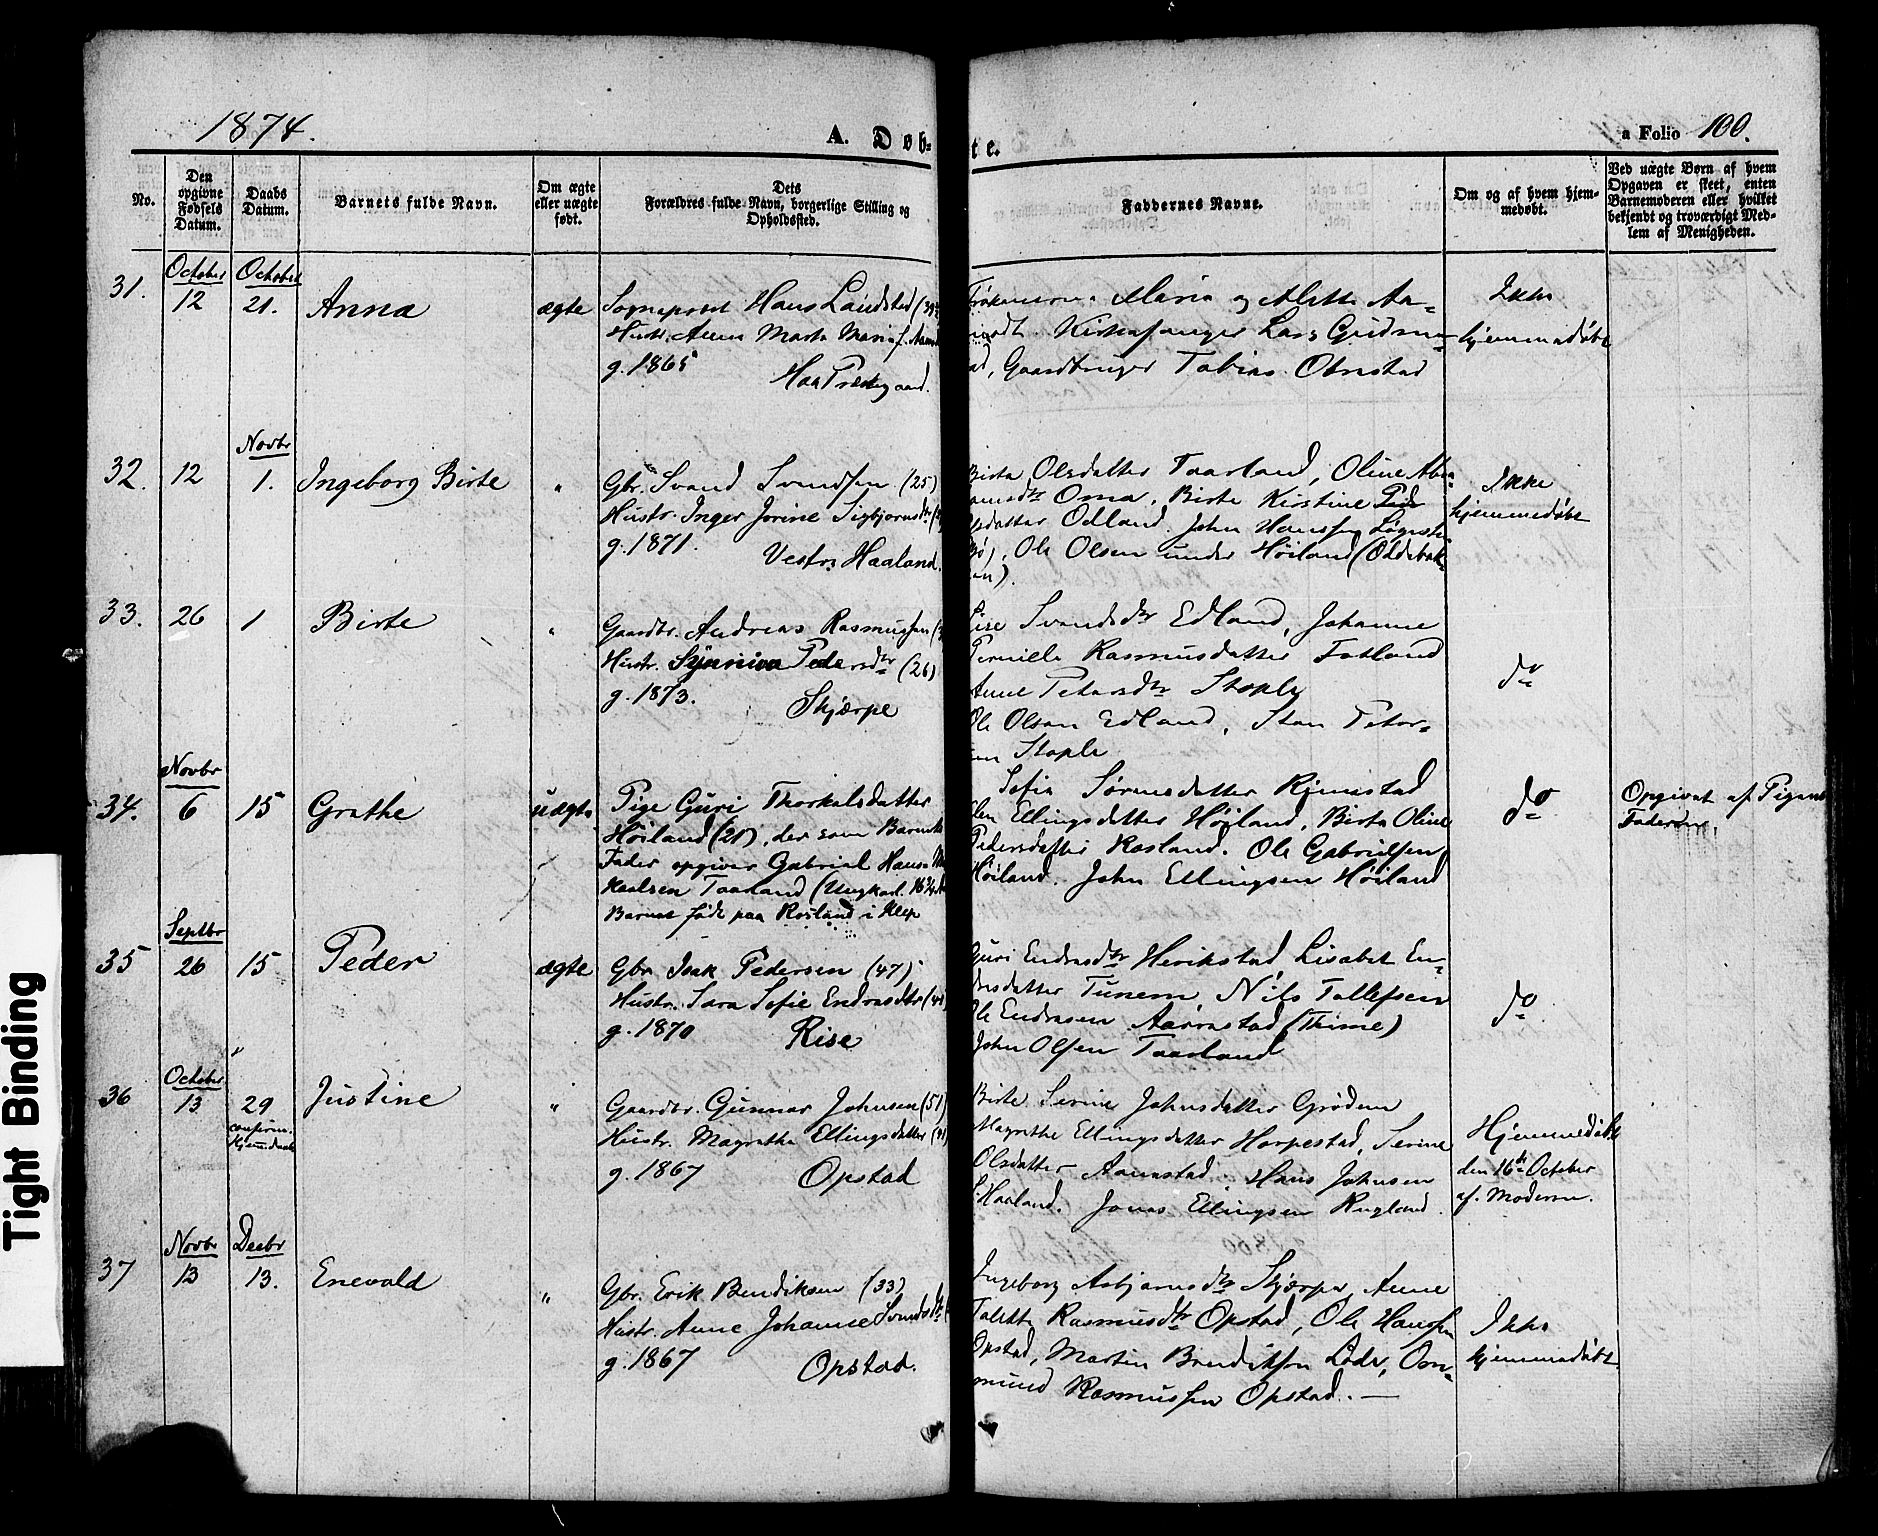 1874.
A. Døb-
te.
a Folio 100.
No.
Den opgivne Fødsels Datum.
Daabs Datum.
Barnets fulde Navn.
Om ægte eller uægte født.
Dets Forældres fulde Navn, borgerlige Stilling og Opholdsted.
Faddernes Navne.
Om og af hvem hjemmedøbt.
Ved uægte Børn af hvem
Opgaven er skeet, enten
Barnemoderen eller hvilket
bekjendt og troværdigt Med-
lem af Menigheden.
31.
October
12
October
21.
Anna
ægte
Sogneprest Hans Landstad
Hustr. Anna Marta Maria f.
g. 1865
Haa Præstegaard.
Maria og Aletta Aa-
Kirkesanger Lars Gudme-
ad, Gaardbruger Tobias Obrestad
Ikke
hjemmedøbt
32.
12
Novbr
1.
Ingeborg Birte
"
Gbr. Svend Svendsen (25)
Hustr. Inger Jorine Sigbjørnsdtr
g. 1871.
Vestre Haaland.
Birta Olsdatter Taarland, Oline Abra-
amsdtr Oma, Birte Kirstine Ped-
ersdatter Odland. John Hansen Løgste-
bø), Ole Olsen under Høiland (Oldebak-
ken).
Ikke
hjemmedøbt
33.
26
1
Birte
"
Gaardbr. Andreas Rasmussen
Hustr. Synniva Pedersdtr (26)
g. 1873.
Skjærpe
Lise Svendsdtr Edland, Johanne
Pernille Rasmusdatter Fotland
Anne Petersdtr Stople
Ole Olsen Edland, Sten Peter-
sen Stople
do
34.
Novbr
6
15
Grethe
uægte
Pige Guri Thorkelsdatter
Høiland (21), der som Barnets
Fader opgiver Gabriel Hans
Kaalsen Taarland (Ungkarl.
Barnet født paa Rosland i Klep
Sofia Sørensdatter Rjemstad
Ellingsdatter Høiland, Birta Oline
Pedersdatter Rosland. Ole Gabrielsen
Høiland. John Ellingsen Høiland
do
Opgivet af Pigens
Faderen.
35
Septbr
26
15
Peder
ægte
Gbr. Isak Pedersen (47)
Hustr. Sara Sofie Endresdtr
g. 1870
Rise
Guri Endresdtr Herikstad Lisabet En-
dresdatter Tunem, Nils Tollefsen
Ole Endresen Aarrestad (Thime)
John Olsen Taarland
do
36
October
13
29
confirm.
hjemmedaab
Justine
"
Gaardbr. Gunnar Johnsen (51)
Hustr. Magretha Ellingsdatter
g. 1867
Opstad
Birte Serine Johnsdatter Grødem
Magrethe Ellingsdatter Horpestad, Serine
Olsdatter Aanestad. Hans Johnsen
S. Haaland. Jonas Ellingsen Rugland.
Hjemmedøbt
den 16de October
af Moderen.
37
Novbr
13
Decbr
13.
Enevald
"
Gbr. Erik Bendiksen (33)
Hustr. Anne Johanne Svendsdtr
g. 1867
Opstad.
Ingeborg Asbjørnsdtr Skjærpe, Anne
Talette Rasmusdtr Opstad, Ole Hansen
Opstad, Martin Bendiksen Lode, Om-
mund Rasmussen Opstad. —
Ikke
hjemmedøbt
Tight Binding